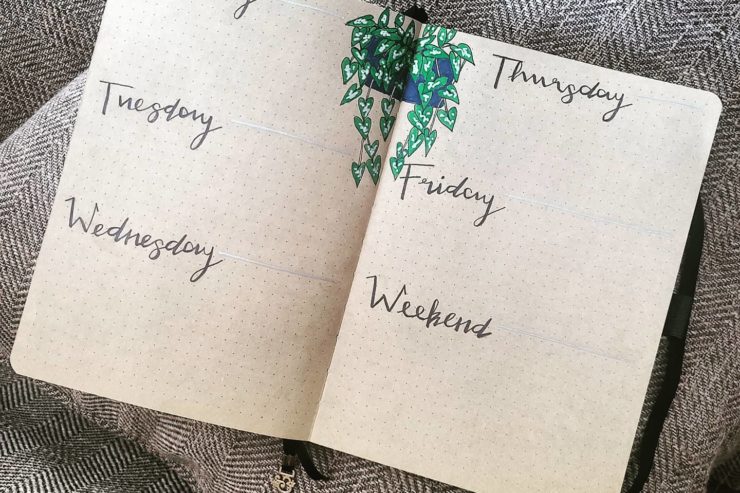 Tuesday
Wednesday
Thursday
Friday
Weekend